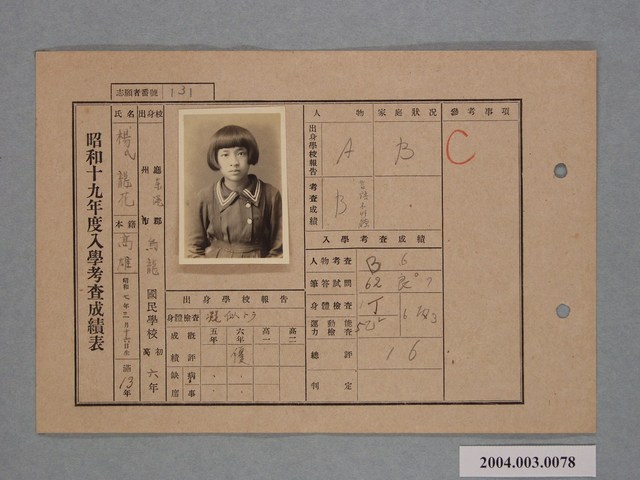 志願者番號 131
昭和十九年度入學考查成績表
氏名 楊氏龍花
本籍 高雄
昭和 七年 月十六日生
滿13年
出身校
州廳 東港
市郡
烏龍
國民學校
高初 六年
出身學校報告
身體檢查
五年 六年 高一 高二
成績概評 優
缺席 病 事
人物 家庭狀況 參考事項
出身學校報告 A B C
考查成績 B
入學考查成績
人物考查 B 6
筆答試問 62 良
身體檢查 丁
運動能力檢查 6
總評 16
判定
2004.003.0078